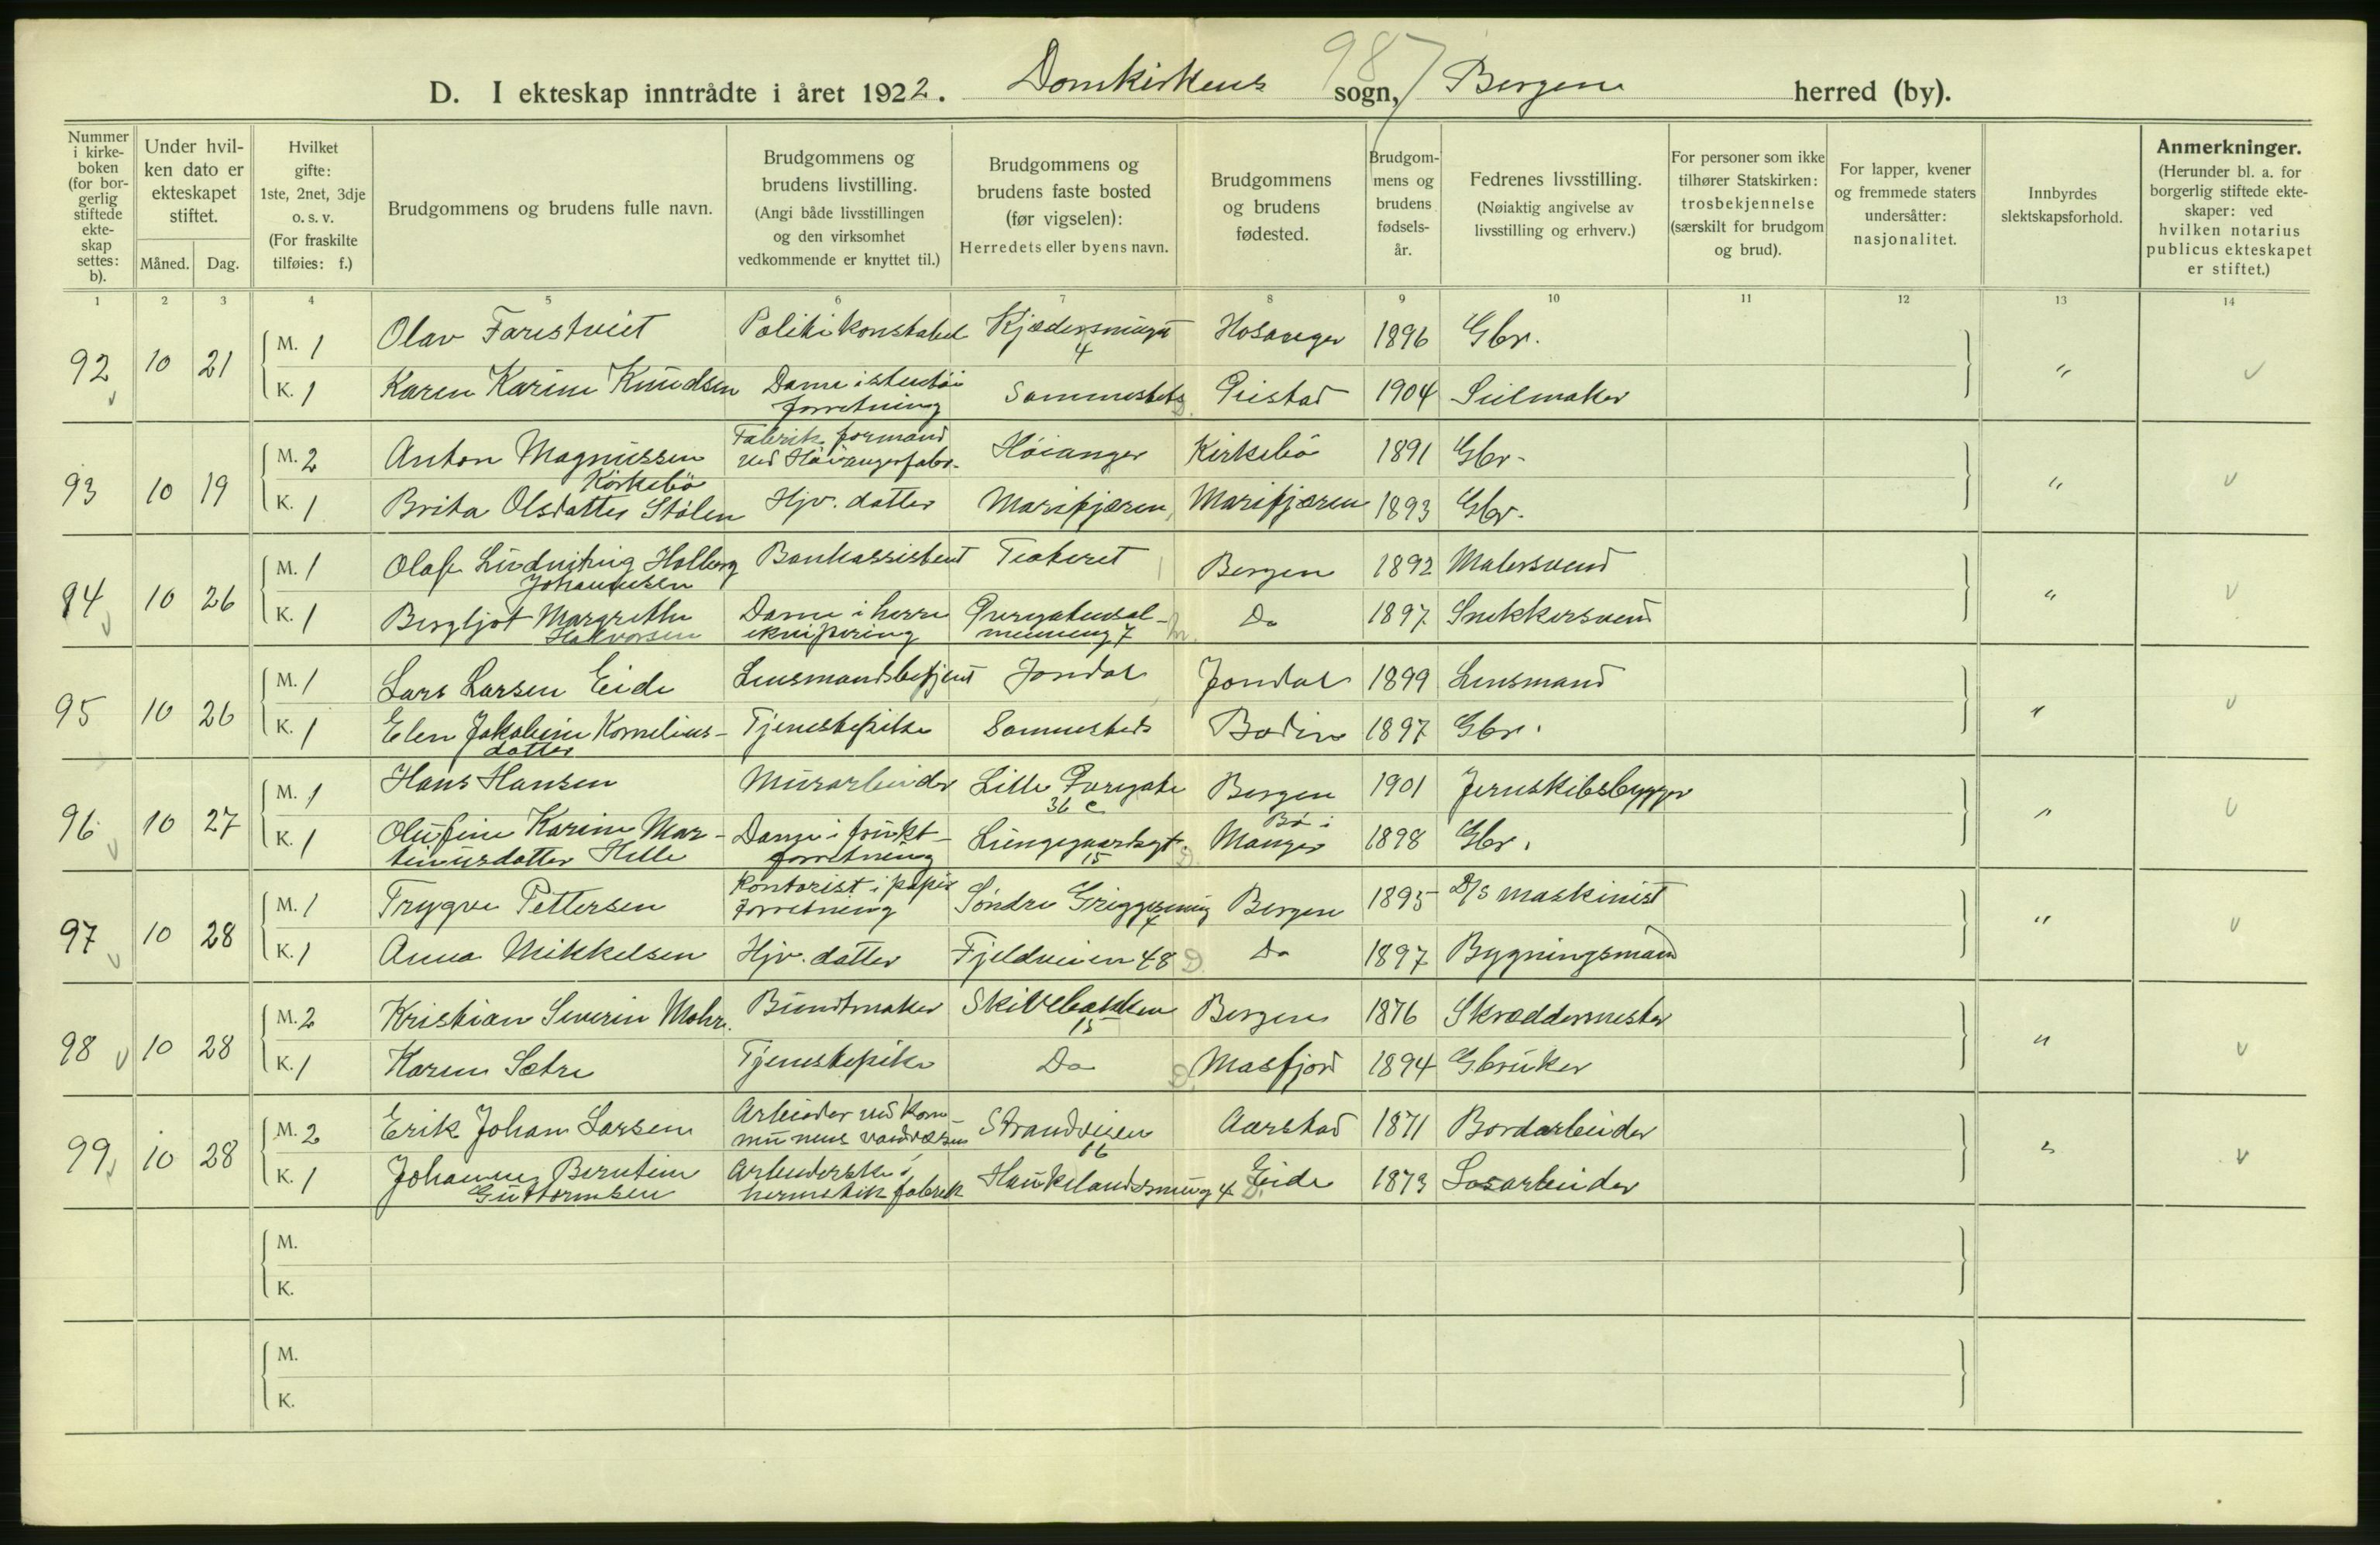 987
D. I ekteskap inntrådte i året 1922. Domkirkens sogn, Bergen herred (by).
Nummer i kirke-boken (for bor-gerlig stiftede ekte-skap settes: b).
Under hvil-ken dato er ekteskapet stiftet.
Måned. Dag.
Hvilket gifte: 1ste, 2net, 3dje o. s. v. (For fraskilte tilføies: f.)
Brudgommens og brudens fulle navn.
Brudgommens og brudens livstilling. (Angi både livsstillingen og den virksomhet vedkommende er knyttet til.)
Brudgommens og brudens faste bosted (før vigselen): Herredets eller byens navn.
Brudgommens og brudens fødested.
Brudgom-mens og brudens fødsels-år.
Fedrenes livsstilling. (Nøiaktig angivelse av livsstilling og erhverv.)
For personer som ikke tilhører Statskirken: trosbekjennelse (særskilt for brudgom og brud).
For lapper, kvener og fremmede staters undersåtter: nasjonalitet.
Innbyrdes slektskapsforhold.
Anmerkninger. (Herunder bl. a. for borgerlig stiftede ekte-skaper: ved hvilken notarius publicus ekteskapet er stiftet.)
1 2 3 4 5 6 7 8 9 10 11 12 13 14
92 10 21 M. 1 Olav Farestveit Politikonstabel 4 Hosanger 1896 Gbr. "
K. 1 Karen Karine Knudsen Dame i forretning Sammesteds 1904 Seilmaker
93 10 19 M. 2 Anton Magnussen Kirkebö Fabrik formand ved Höiangerfabr. Höianger Kirkebö 1891 Gbr. "
K. 1 Brita Olsdatter Stölen Hjv. datter Marifjæren Marifjæren 1893 Gbr.
94 10 26 M. 1 Olaf Ludvig Holberg Johannesen Bankassistent Teateret Bergen 1892 Malersvend "
K. 1 Bergljot Margrethe Halvorsen Dame i herre ekvipering 7 Do 1897 Snekkersvend
95 10 26 M. 1 Lars Larsen Eide Lensmandsbetjent Jondal Jondal 1899 Lensmand "
K. 1 Elen Jakobine Kornelius-datter Tjenestepike Sammesteds Bodin 1897 Gbr.
96 10 27 M. 1 Hans Hansen Murarbeider Lille Øvregate 36 c Bergen 1901 Jernskibsbygger "
K. 1 Olufine Karine Mar-tinusdatter Helle Dame i frukt-forretning Lungegaardsgt. 15 Bö i Manger 1898 Gbr.
97 10 28 M. 1 Trygve Pettersen Kontorist i papir forretning Söndre 4 Bergen 1895 D/S maskinist "
K. 1 Anna Mikkelsen Hjv. datter Fjeldveien 48 Do 1897 Bygningsmand
98 10 28 M. 2 Kristian Severin Mohr. Buntmaker Skivebakken 15 Bergen 1876 Skræddermester "
K. 1 Karen Sætre Tjenestepike Do Masfjord 1894 Gbruker
99 10 28 M. 2 Erik Johan Larsen Arbeider ved kom-munens vandvæsen Strandveien 16 Aarstad 1871 Bordarbeider "
K. 1 Johanne Berntine Guttormsen Arbeiderske i hermetik fabrik Haukelandsmug 4 Eide 1873 Losarbeider
M.
K.
M.
K.